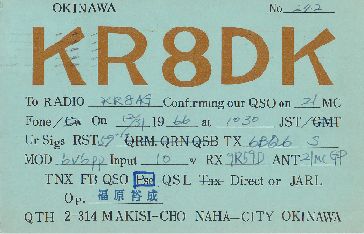 OKINAWA No 242
KR8DK
To RADIO KR8AG Confirming our QSO on 21 MC
Fone/Cw On 19 66 at 1030 JST/GMT
Ur Sigs RST QRM QRN QSB TX 6BQ6 S
MOD Input 10 w RX 9R59D ANT 21MC GP
TNX FB QSO Pse QSL Tax Direct or JARL
Op. 福原裕成
QTH 2-314 MAKISI-CHO NAHA-CITY OKINAWA